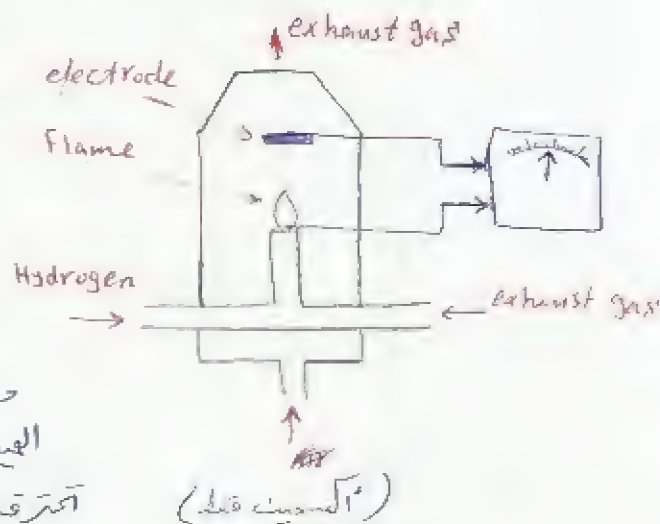 exhaust gas
electrode
Flame
Hydrogen
exhaust gas
Air
(أكسجين فقط)